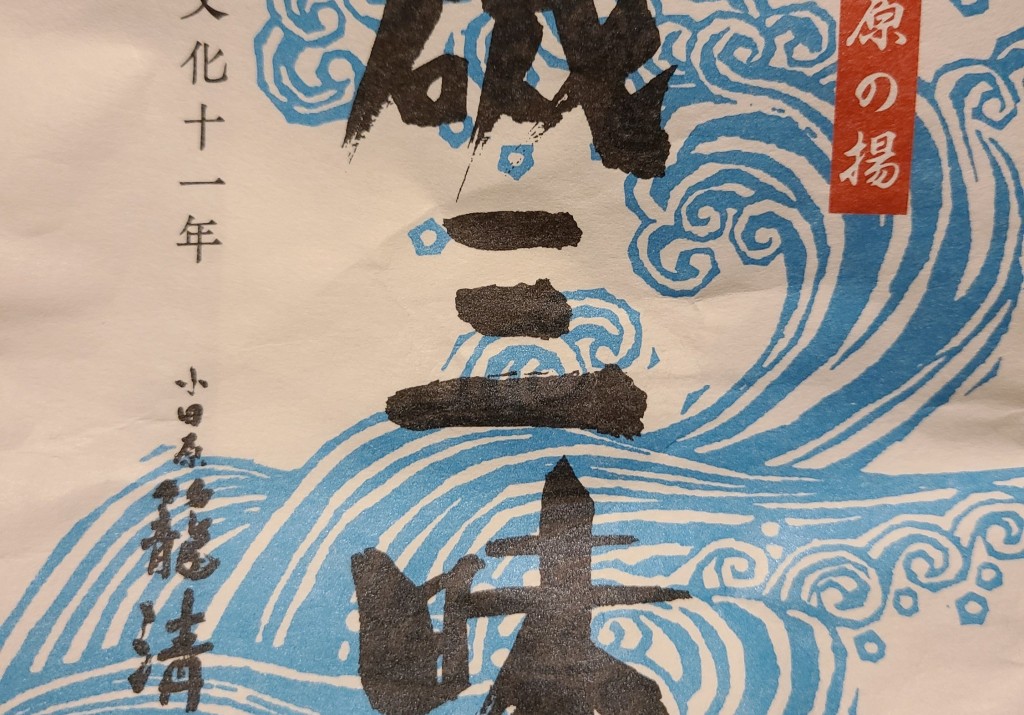 原の揚
磯三味
文化十一年
小田原籠清